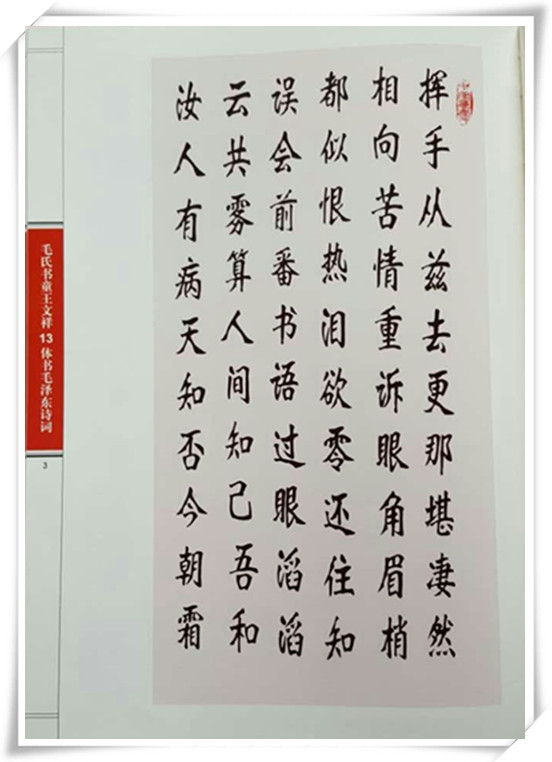 挥手从兹去更那堪凄然
相向苦情重诉眼角眉梢
都似恨热泪欲零还住知
误会前番书语过眼滔滔
云共雾算人间知己吾和
汝人有病天知否今朝霜
毛氏书童王文祥13体书毛泽东诗词
3